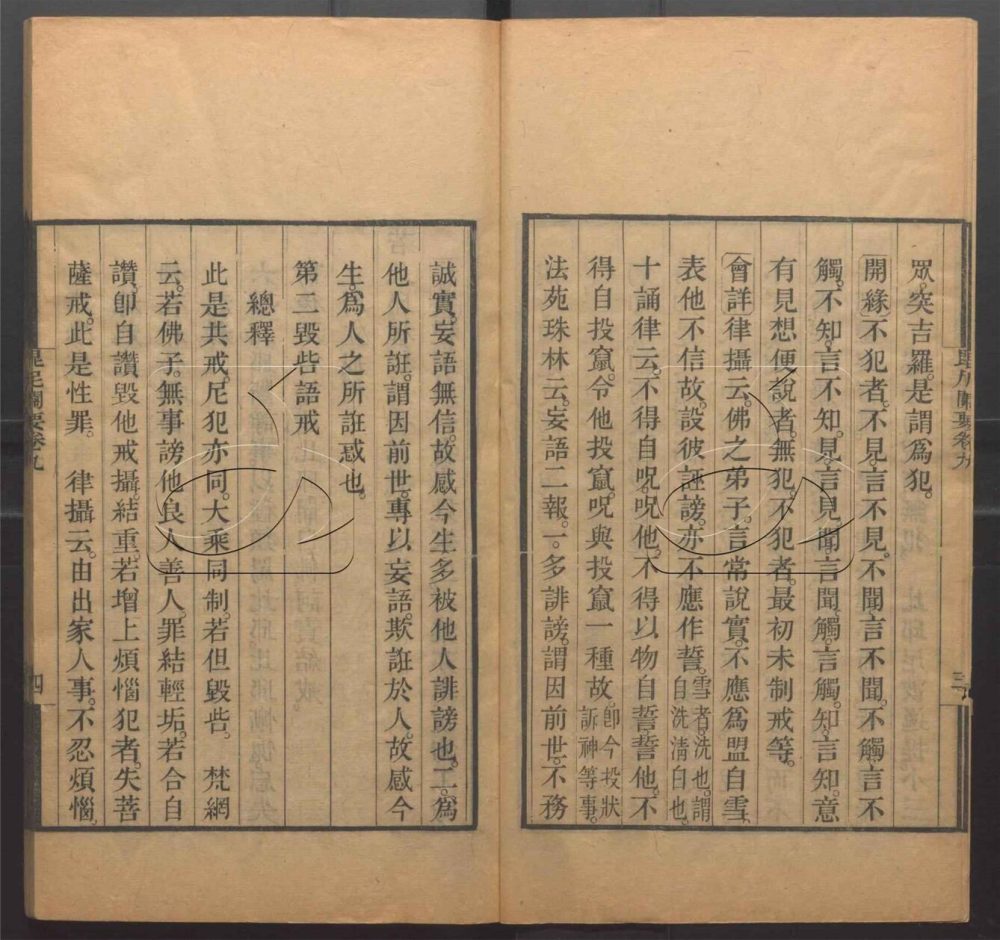 眾。突吉羅。是謂爲犯。
開緣不犯者。不見言不見。不聞言不聞。不觸言不
觸。不知言不知。見言見。聞言聞。觸言觸。知言知。意
有見想便說者。無犯。不犯者。最初未制戒等。
會詳律攝云。佛之弟子。言常說實。不應爲盟自雪。
表他不信故。設彼誣謗。亦不應作誓。雪者。洗也。謂自洗淸白也。
十誦律云。不得自呪。呪他。不得以物自誓。誓他。不
得自投竄。令他投竄。呪與投竄一種故。卽今投狀訴神等事。
法苑珠林云。妄語二報。一。多誹謗。謂因前世。不務
誠實。妄語無信。故感今生多被他人誹謗也。二。爲
他人所誑。謂因前世。專以妄語。欺誑於人。故感今
生。爲人之所誑惑也。
第三毀呰語戒
總釋
此是共戒。尼犯亦同。大乘同制。若但毀呰。 梵網
云。若佛子。無事謗他良人善人。罪結輕垢。若合自
讚。卽自讚毀他戒攝。結重。若增上煩惱犯者。失菩
薩戒。此是性罪。 律攝云。由出家人事。不忍煩惱。
毘尼關要卷九
四